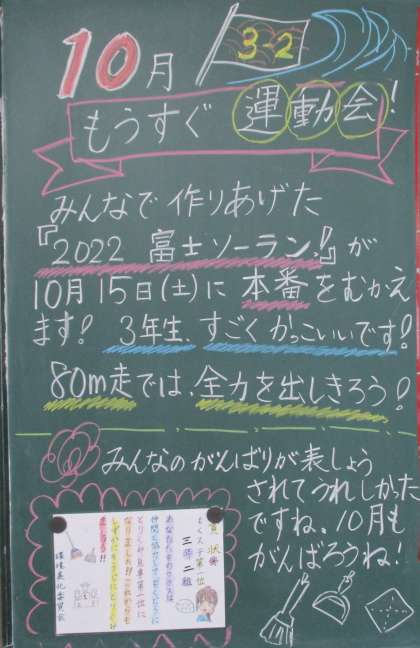 10月
3-2
もうすぐ運動会!
みんなで作りあげた
『2022 富士ソーラン!』が
10月15日(土)に本番をむかえ
ます! 3年生、すごくかっこいいです!
80m走では、全力を出しきろう!
みんなのがんばりが表しょう
されてうれしかった
ですね。10月も
がんばろうね!
賞状
もくスタ第一位
三年二組
環境美化委員会